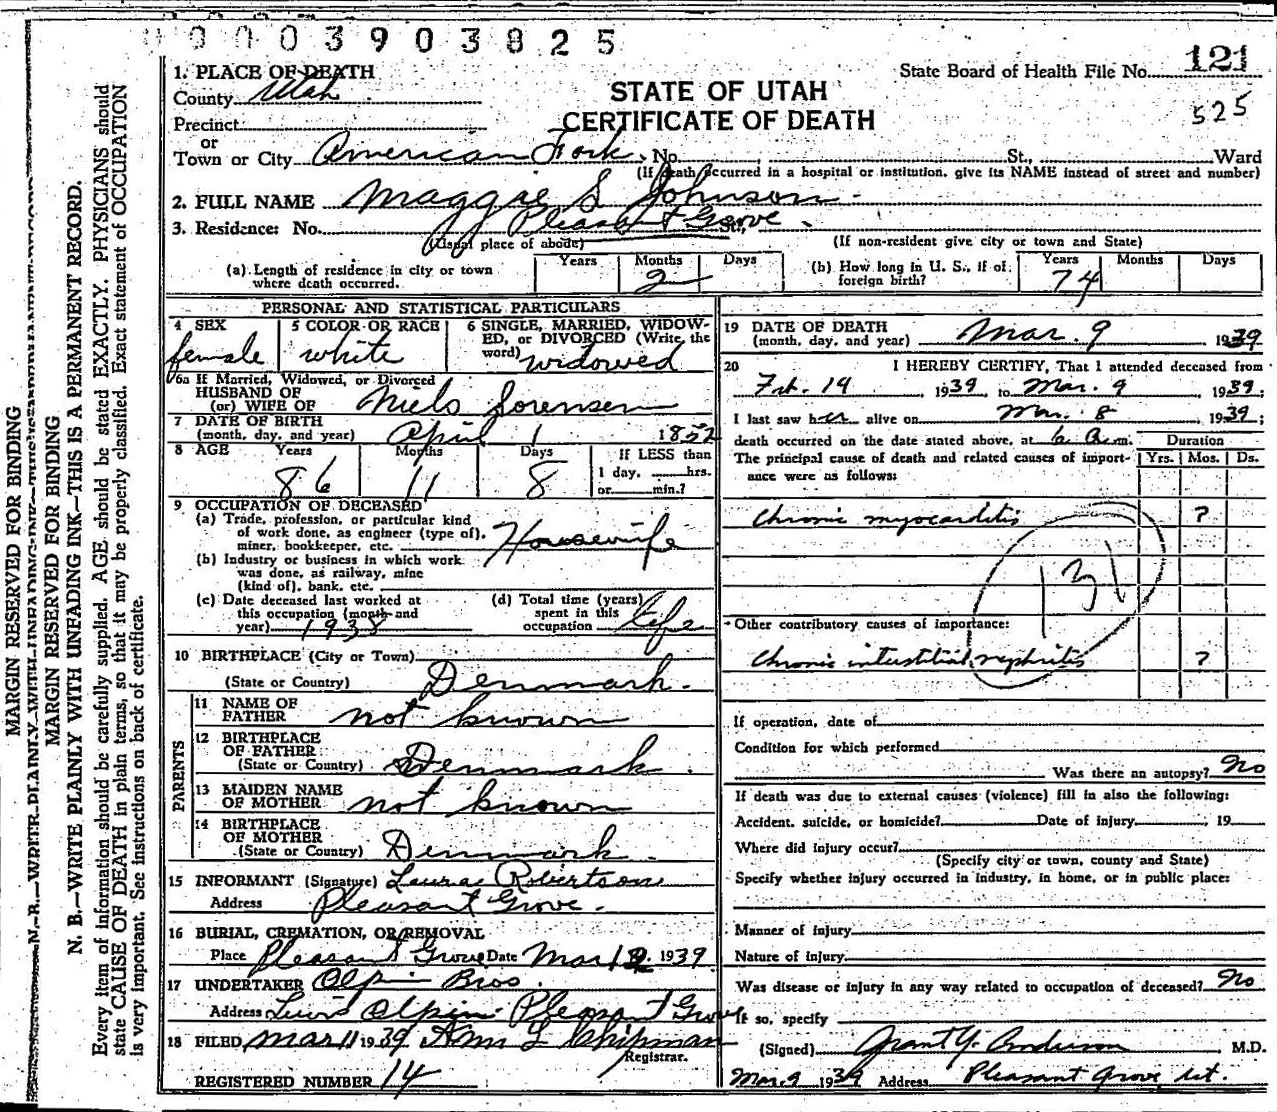 0003903825
State Board of Health File No. 121
525
STATE OF UTAH
CERTIFICATE OF DEATH
1. PLACE OF DEATH
County Utah
Precinct
or
Town or City American Fork, No. , St., Ward
(If death occurred in a hospital or institution, give its NAME instead of street and number)
2. FULL NAME Maggie S Johnson
3. Residence: No. Pleasant Grove St.,
(Usual place of abode) (If non-resident give city or town and State)
(a) Length of residence in city or town where death occurred. Years Months 2 Days
(b) How long in U. S., if of foreign birth? Years 74 Months Days
PERSONAL AND STATISTICAL PARTICULARS
4 SEX female
5 COLOR OR RACE white
6 SINGLE, MARRIED, WIDOWED, or DIVORCED (Write the word) widowed
6a If Married, Widowed, or Divorced
HUSBAND OF
(or) WIFE OF Niels Sorensen
7 DATE OF BIRTH
(month, day, and year) April 1 1852
8 AGE Years 86 Months 11 Days 8 If LESS than 1 day, hrs. or min.?
9 OCCUPATION OF DECEASED
(a) Trade, profession, or particular kind of work done, as engineer (type of), miner, bookkeeper, etc. Housewife
(b) Industry or business in which work was done, as railway, mine (kind of), bank, etc.
(c) Date deceased last worked at this occupation (month and year) 1938
(d) Total time (years) spent in this occupation life
10 BIRTHPLACE (City or Town)
(State or Country) Denmark.
PARENTS
11 NAME OF FATHER not known
12 BIRTHPLACE OF FATHER
(State or Country) Denmark.
13 MAIDEN NAME OF MOTHER not known
14 BIRTHPLACE OF MOTHER
(State or Country) Denmark.
15 INFORMANT (Signature) Laura Robertson
Address Pleasant Grove.
16 BURIAL, CREMATION, OR REMOVAL
Place Pleasant Grove Date Mar 12 1939
17 UNDERTAKER Olpin Bros.
Address Olpin Pleasant Grove
18 FILED Mar 11 1939 L Chipman
Registrar.
REGISTERED NUMBER 14
19 DATE OF DEATH
(month, day, and year) Mar. 9 1939
20 I HEREBY CERTIFY, That I attended deceased from
Feb. 19 1939, to Mar. 9 1939;
I last saw her alive on Mar. 8, 1939;
death occurred on the date stated above, at 6 a.m. Duration
The principal cause of death and related causes of importance were as follows: Yrs. Mos. Ds.
Chronic myocarditis ?
131
Other contributory causes of importance:
Chronic interstitial nephritis ?
If operation, date of
Condition for which performed
Was there an autopsy? No
If death was due to external causes (violence) fill in also the following:
Accident, suicide, or homicide? Date of injury , 19
Where did injury occur?
(Specify city or town, county and State)
Specify whether injury occurred in industry, in home, or in public place:
Manner of injury
Nature of injury
Was disease or injury in any way related to occupation of deceased? No
If so, specify
(Signed) Grant Y. Anderson, M.D.
Mar. 9 1939 Address Pleasant Grove, Ut.
MARGIN RESERVED FOR BINDING
MARGIN RESERVED FOR BINDING
N. B.—WRITE PLAINLY WITH UNFADING INK—THIS IS A PERMANENT RECORD.
Every item of information should be carefully supplied. AGE should be stated EXACTLY. PHYSICIANS should
state CAUSE OF DEATH in plain terms, so that it may be properly classified. Exact statement of OCCUPATION
is very important. See instructions on back of certificate.